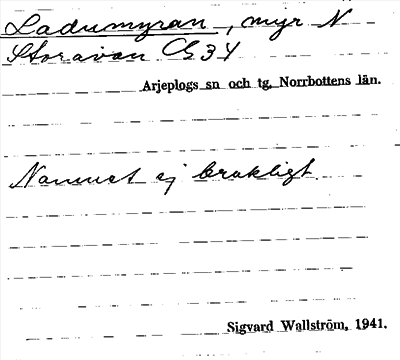 Ladumyran, myr N
Storavan G34
Arjeplogs sn och tg, Norrbottens län.
Namnet ej brukligt.
Sigvard Wallström, 1941.